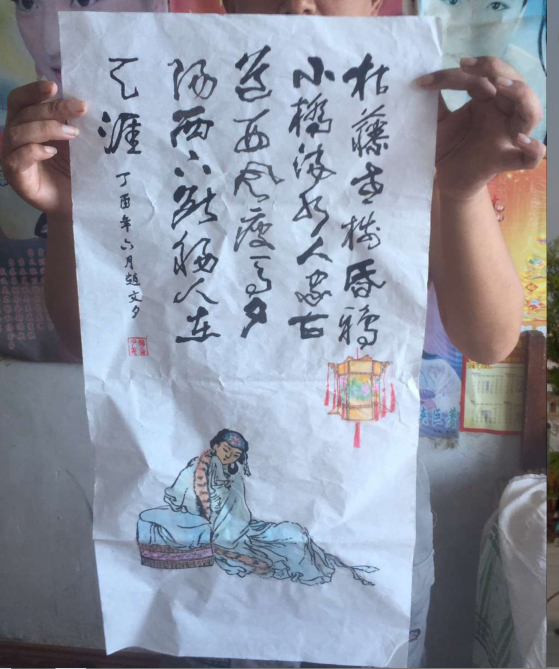 枯藤老樹昏鴉
小橋流水人家古
道西风瘦马夕
陽西下断腸人在
天涯
丁酉年六月趙文夕